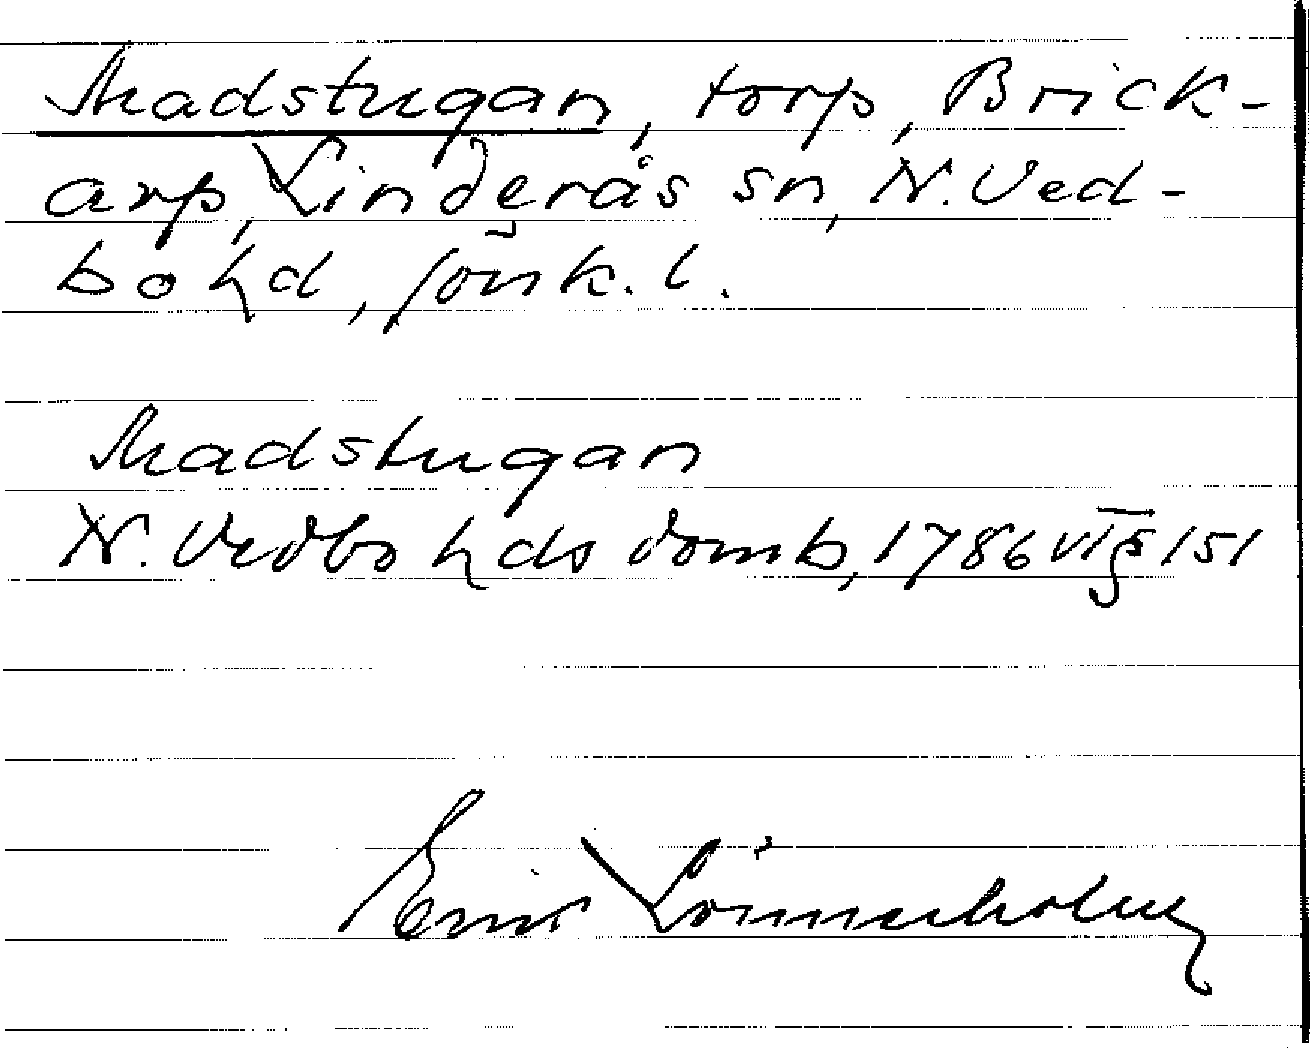 Madstugan, torp, Brick-
arp, Linderås sn, N. Ved-
bo hd, Jönk. l.
Madstugan
N. Vedbo hds domb, 1786 VI § 151
Erik Lönnerholm